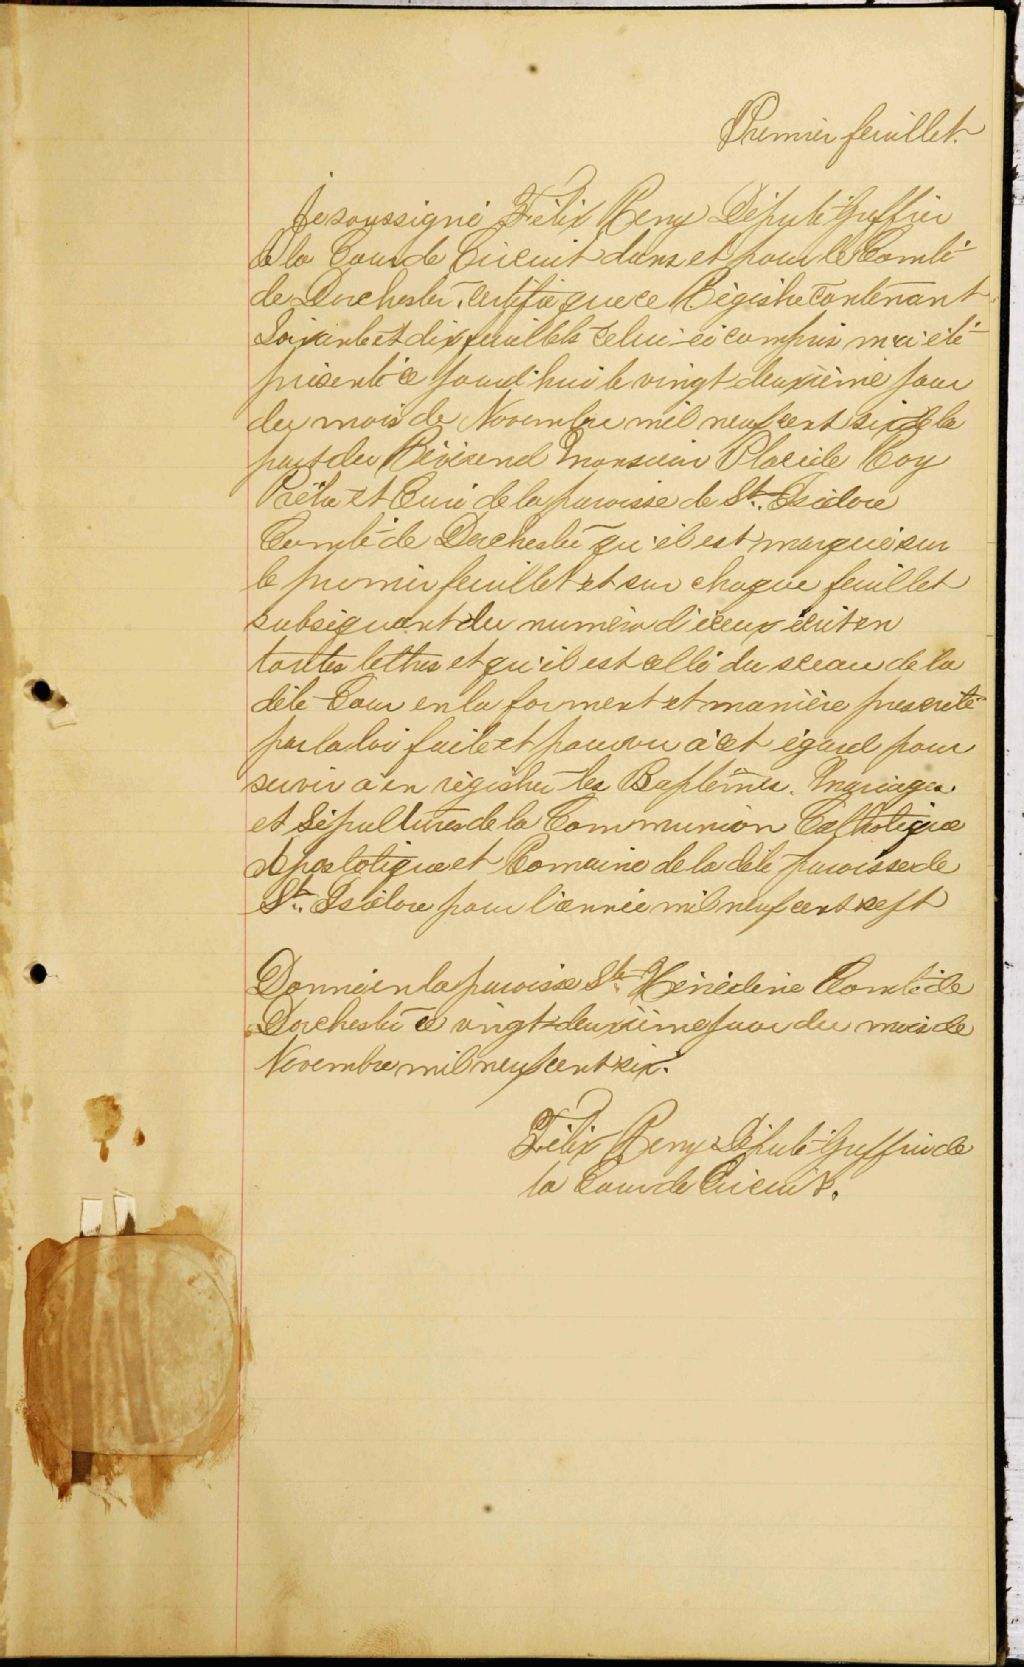 Premier feuillet.
Je soussigné Félix Remy Député Greffier
de la Cour de Circuit dans et pour le Comté
de Dorchester, certifie que ce Régistre contenant
Soixante et dix feuillets celui-ci compris m'a été
présenté ce jourd'hui le vingt-deuxième jour
du mois de Novembre mil neuf cent six de la
part du Révérend Monsieur Placide Roy
Prêtre et Curé de la paroisse de St. Isidore
Comté de Dorchester qu'il est marqué sur
le premier feuillet et sur chaque feuillet
subséquent du numéro d'iceux écrit en
toutes lettres et qu'il est scellé du sceau de la
dite Cour en la forment et manière prescrite
par la loi faite et pourvu à cet égard pour
servir à en régistrer les Baptêmes, Mariages
et Sépultures de la Communion Catholique
Apostolique et Romaine de la dite paroisse de
St. Isidore pour l'année mil neuf cent sept
Donné en la paroisse Ste Hénédine Comté de
Dorchester ce vingt-deuxième jour du mois de
Novembre mil neuf cent six.
Félix Remy Député Greffier de
la Cour de Circuit.